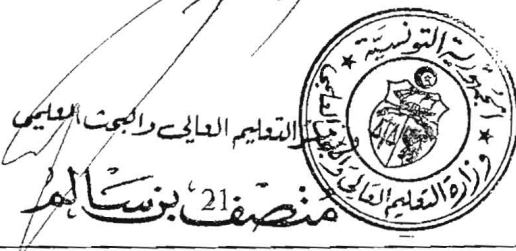 الجمهورية التونسية
وزارة التعليم العالي والبحث العلمي
وزير التعليم العالي والبحث العلمي
منصف بن سالم
21